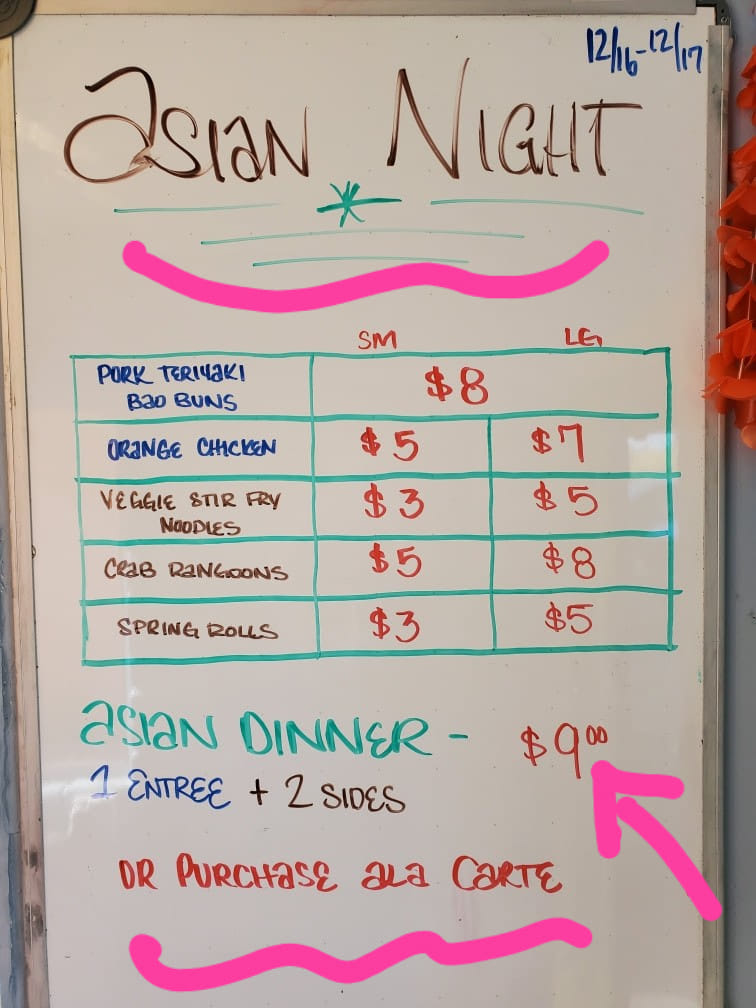 12/16-12/17
ASIAN NIGHT
SM LG
PORK TERIYAKI
BAO BUNS
$8
ORANGE CHICKEN $5 $7
VEGGIE STIR FRY
NOODLES
$3 $5
CRAB RANGOONS $5 $8
SPRING ROLLS $3 $5
ASIAN DINNER - $9.00
1 ENTREE + 2 SIDES
OR PURCHASE ALA CARTE